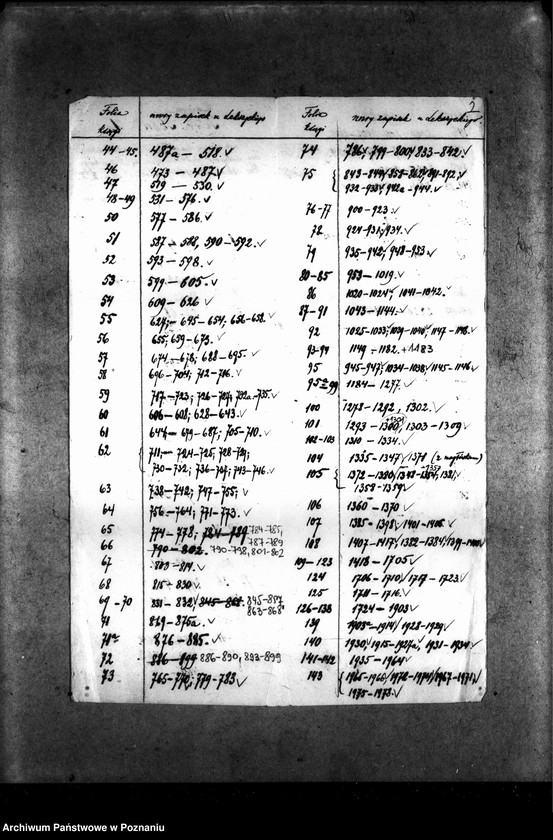 2
Folia księgi
numery zapisek u Lekszyckiego
44-45. 487a — 518. ✓
46 473 — 487 ✓
47 519 — 530. ✓
48-49 531 — 576. ✓
50 577 — 586. ✓
51 587 — 588, 590 — 592. ✓
52 593 — 598. ✓
53 599 — 605. ✓
54 609 — 626 ✓
55 627; — 645 — 654, 656-658. ✓
56 655, 659 — 673. ✓
57 674 — 678; 688 — 695. ✓
58 696 — 704; 712 — 716. ✓
59 717 — 723; 726 — 727; 732a — 735. ✓
60 606 — 608; 628 — 643. ✓
61 644; — 679 — 687; 705 — 710. ✓
62 711; — 724 — 725, 728 — 729;
730 — 732; 736 — 737; 743 — 746. ✓
63 738 — 742; 747 — 755; ✓
64 756 — 764; 771 — 773. ✓
65 774 — 778; 784 — 789 784-785, 787-789
66 790 — 802. 790-798, 801-802
67 803 — 814. ✓
68 815 — 830 ✓
69-70 831 — 832, 845-868 845-857 863-868
71 869 — 875a. ✓
71a 876 — 885. ✓
72 886 — 899 886-890, 893-899
73 765 — 770; 779 — 783 ✓
Folia księgi
numery zapisek u Lekszyckiego.
74 786; 799 — 800; 833 — 842. ✓
75 843 — 844; 858 — 862; 891-892. ✓
932 — 933; 942a — 944. ✓
76-77 900 — 923. ✓
78 924 — 931; 934. ✓
79 935 — 942; 948 — 953. ✓
80-85 953 — 1019. ✓
86 1020 — 1024; 1041 — 1042. ✓
87-91 1043 — 1144. ✓
92 1025 — 1033; 1039 — 1040; 1147 — 1148. ✓
93-94 1149 — 1182. + 1183
95 945 — 947; 1034 — 1038; 1145 — 1146 ✓
95a-99 1184 — 1277. ✓
100 1278 — 1292, 1302. ✓
101 1293 — 1300, +1301 1303 — 1309 ✓
102-103 1310 — 1334. ✓
104 1335 — 1347; 1371
105 1372 — 1380; 1348 — 1354; 1357 1381;
1358 — 1359. ✓
106 1360 — 1370 ✓
107 1385 — 1398; 1401 — 1406. ✓
108 1407 — 1417; 1382 — 1384; 1399 — 1400 ✓
109-123 1418 — 1705 ✓
124 1706 — 1710; 1717 — 1723. ✓
125 1711 — 1716. ✓
126-138 1724 — 1903 ✓
139 1905 — 1914; 1928 — 1929. ✓
140 1930; 1915 — 1927a, 1931 — 1934. ✓
141-142 1935 — 1964 ✓
143 1965 — 1966; 1972 — 1974; 1967 — 1971. ✓
1975 — 1973. ✓
Archiwum Państwowe w Poznaniu